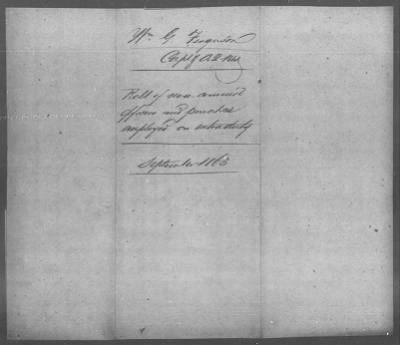 Wm G Ferguson
Capt & A.Q.M.
Roll of non-commis'd
officers and privates
employed on extra duty
September 1863